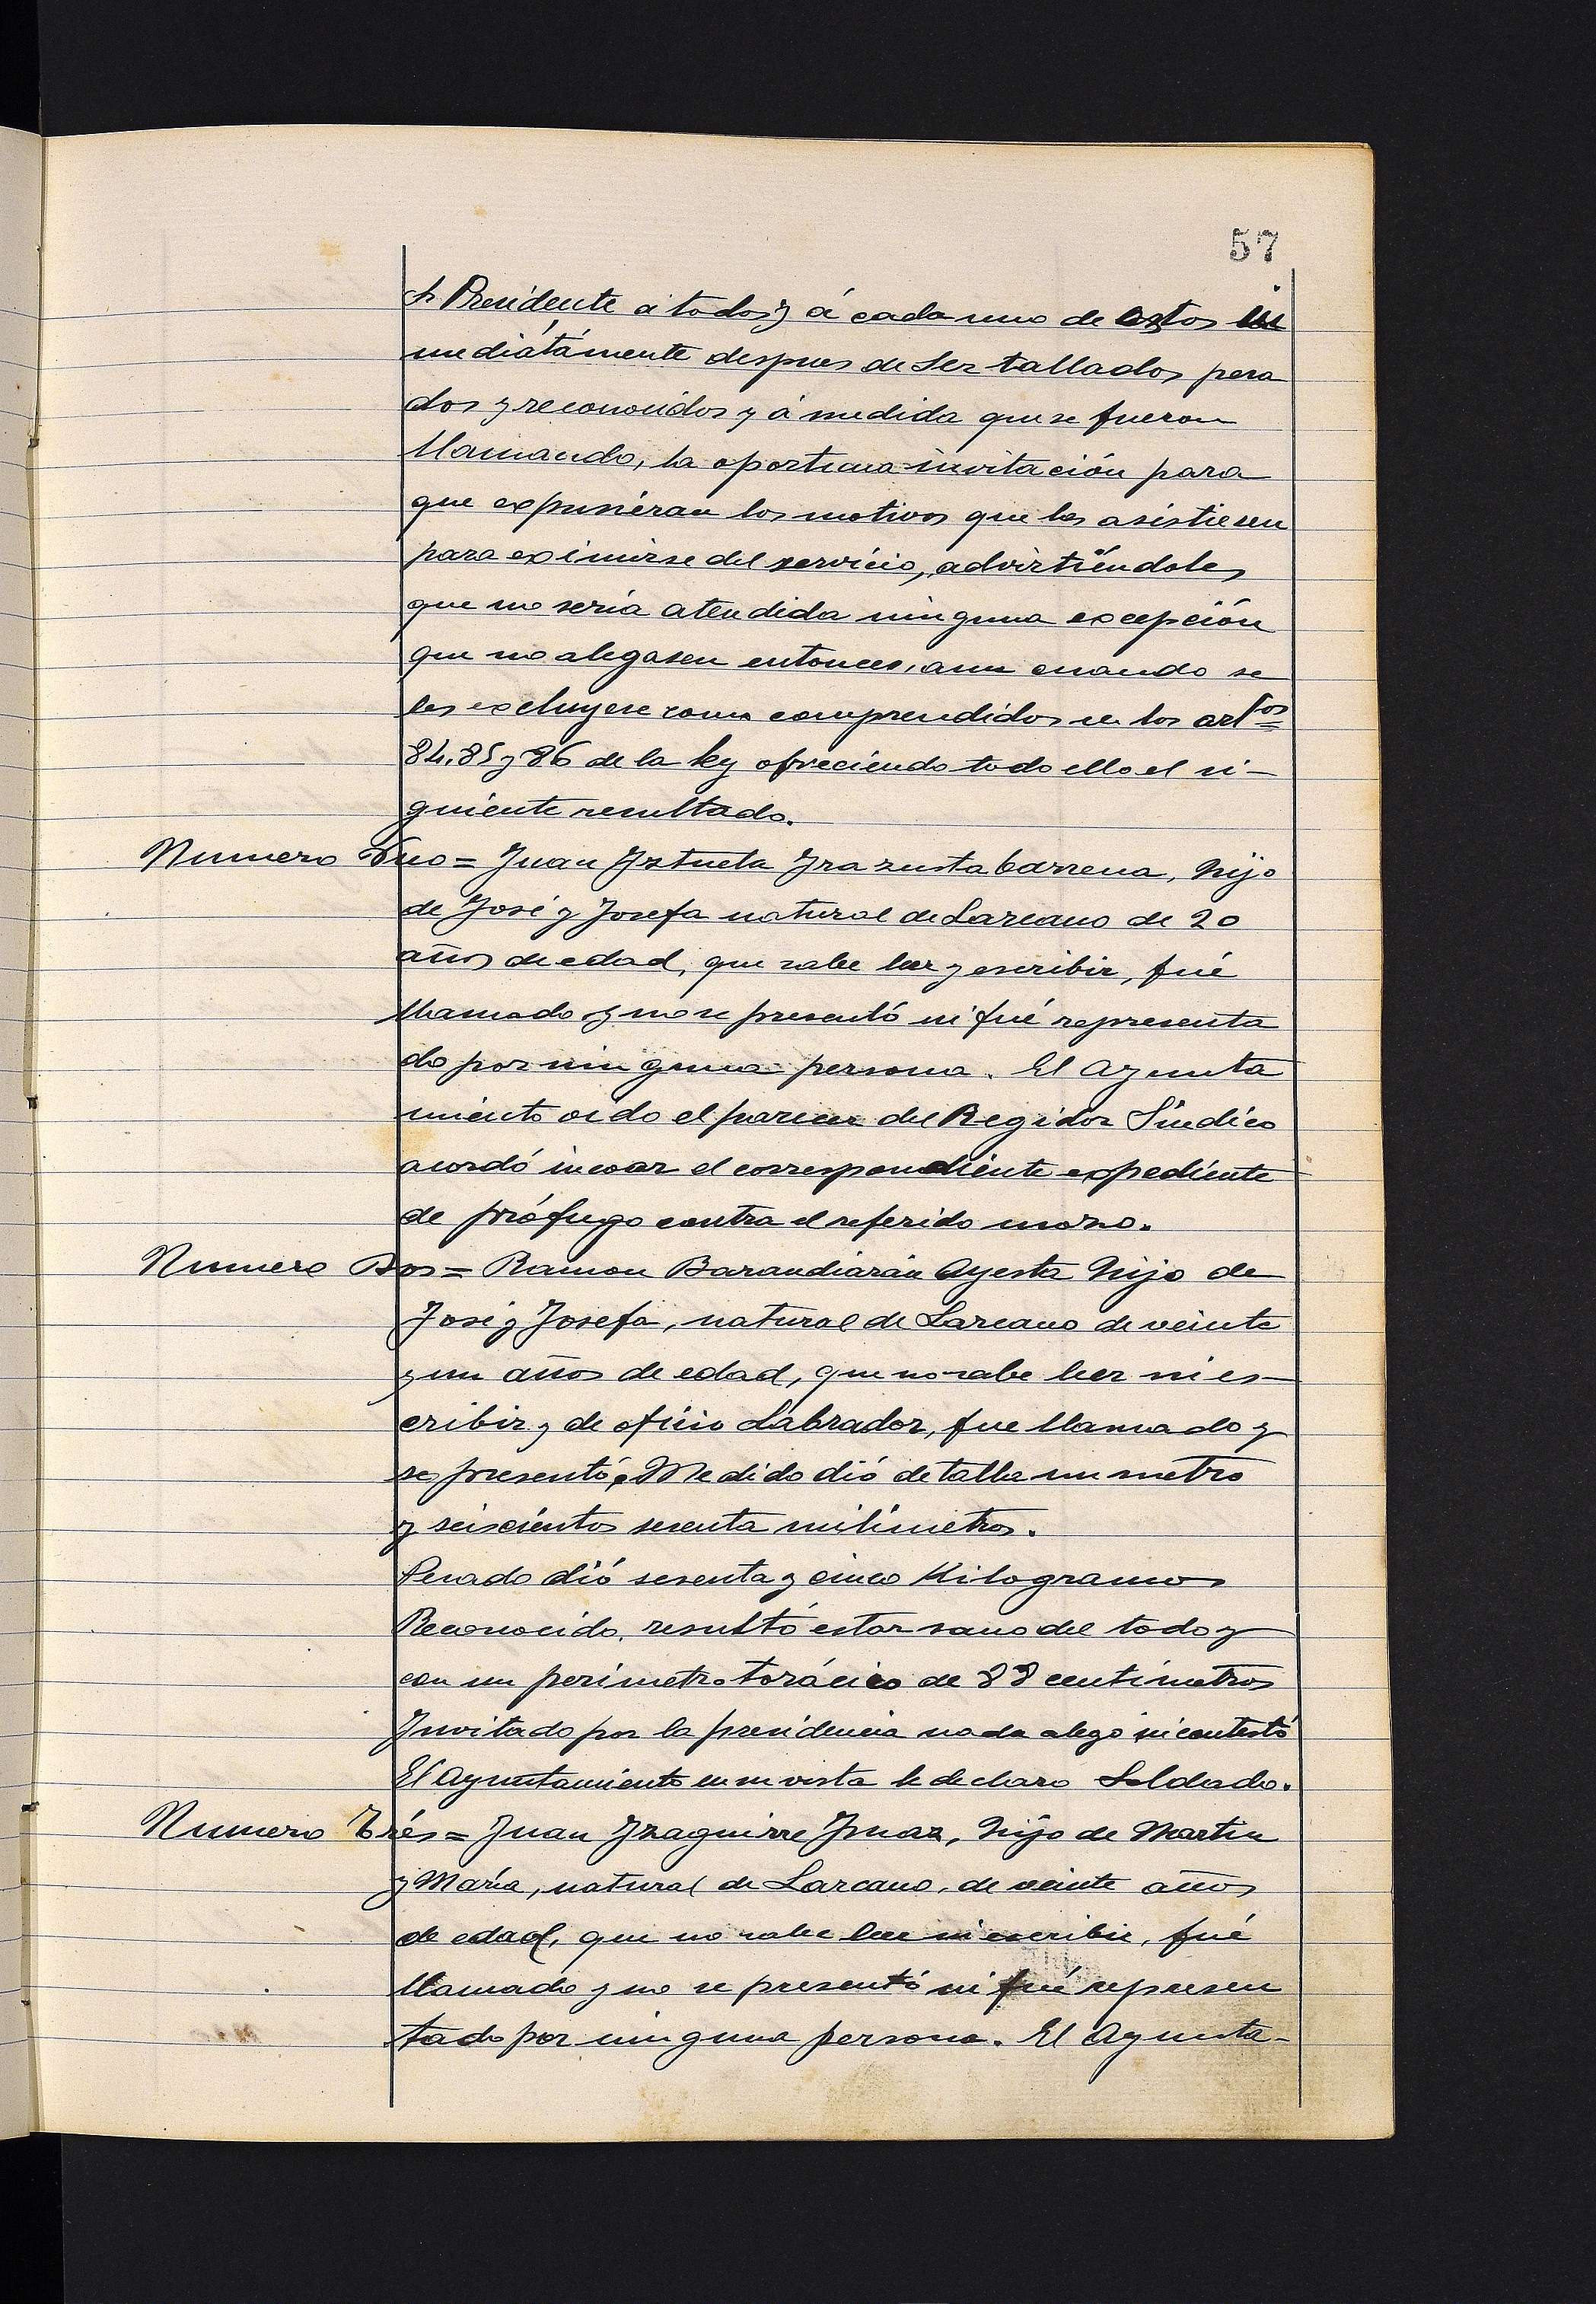 57
Sr Presidente a todos y á cada uno de estos in
mediátamente despues de ser tallados pesa
dos y reconocidos y á medida que se fueron
llamando, la oportuna invitación para
que expusiéran los motivos que les asistiesen
para eximirse del servicio, advirtiéndoles
que no sería atendida ninguna excepción
que no alegasen entonces, aun cuando se
les excluyese como comprendidos en los artos
84, 85 y 86 de la ley ofreciendo todo ello el si-
guiente resultado.
Numero Uno = Juan Iztueta Irazustabarrena, hijo
de José y Josefa natural de Lazcano de 20
años de edad, que sabe leer y escribir, fué
llamado y no se presentó ni fué representa
do por ninguna persona. El Ayunta
miento oido el parecer del Regidor Síndico
acordó incoar el correspondiente expediente
de prófugo contra el referido mozo.
Numero Dos = Ramon Barandiarán Ayesta hijo de
José y Josefa, natural de Lazcano de veinte
y un años de edad, que no sabe leer ni es-
cribir y de oficio Labrador, fue llamado y
se presentó, Medido dió de talla un metro
y seiscientos sesenta milímetros.
Pesado dió sesenta y cinco Kilogramos
Reconocido, resultó estar sano del todo y
con un perímetro torácico de 88 centímetros
Invitado por la presidencia nada alegó ni contestó
El Ayuntamiento en su vista le declaro Soldado.
Numero Trés = Juan Izaguirre Imaz, hijo de Martin
y María, natural de Lazcano, de veinte años
de edad, que no sabe leer ni escribir, fué
llamado y no se presentó ni fué represen
tado por ninguna persona. El Ayunta-